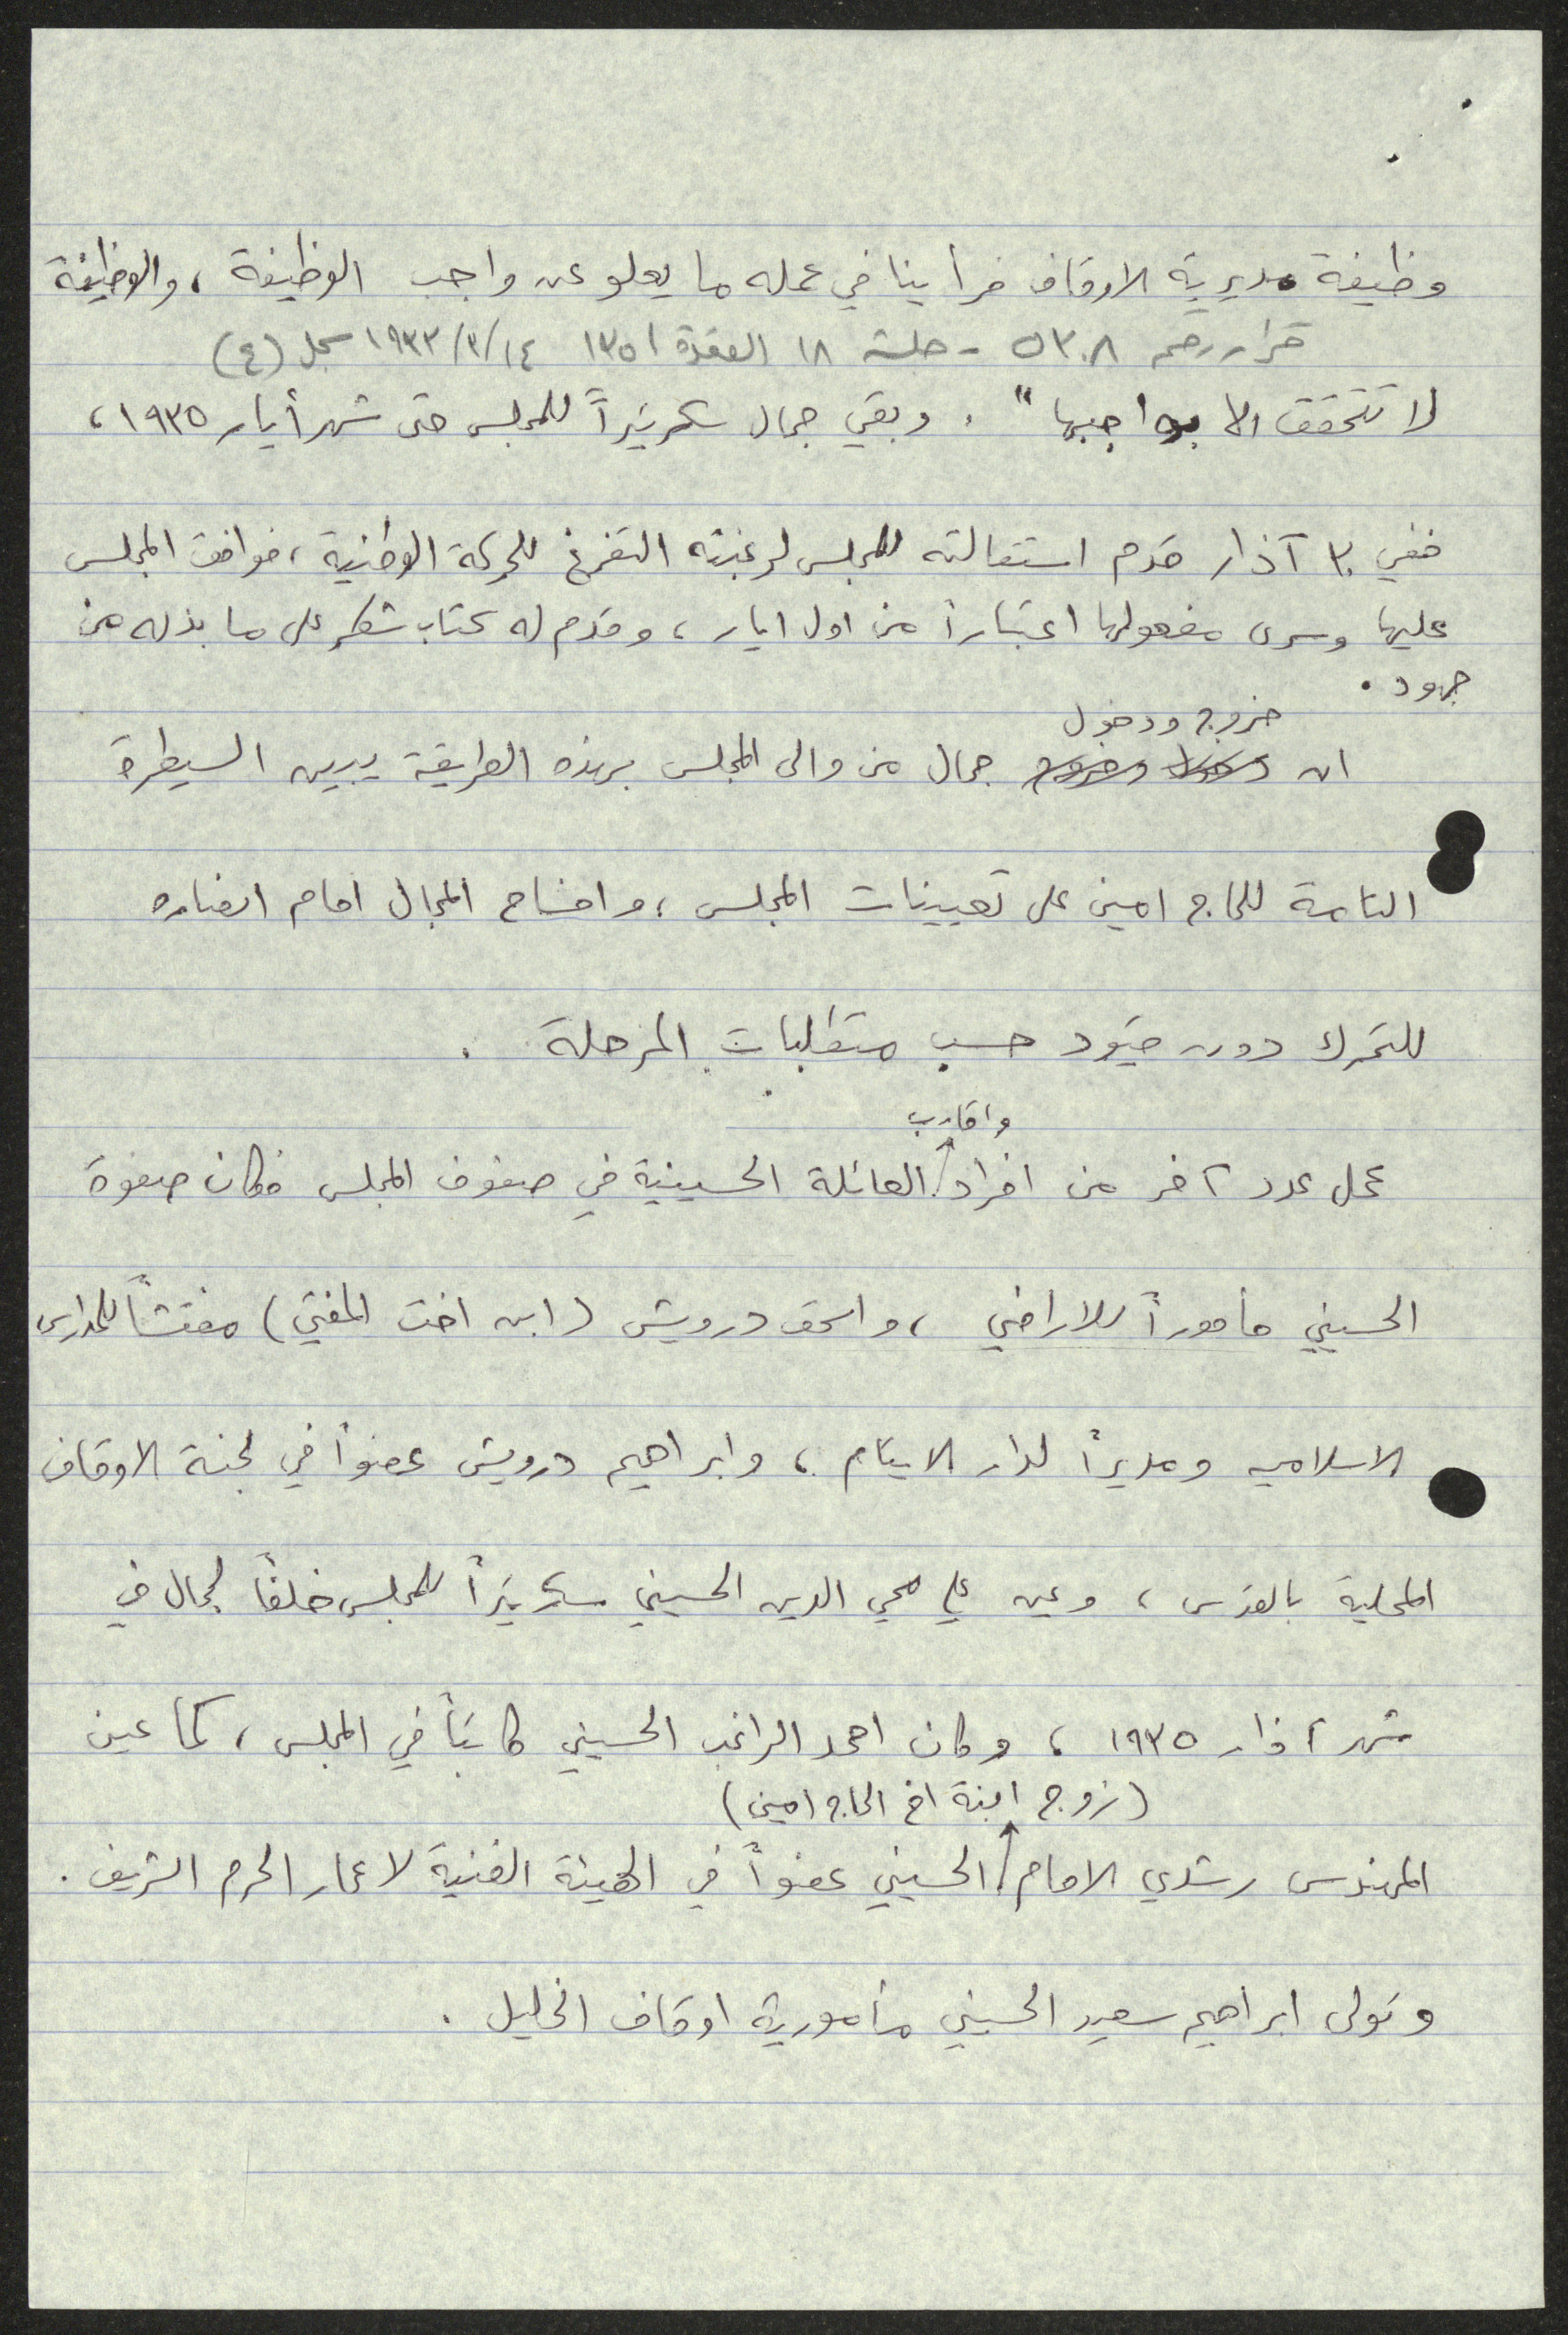 وظيفة مديرية الاوقاف فرأينا في عمله ما يعلو عن واجب الوظيفة ، والوظيفة
قرار رقم ٥٣٠٨ - جلسة ١٨ القعدة ١٣٥١ ١٤/٣/١٩٣٣ سجل (٤)
لا تتحقق الا بواجبها" . وبقي جمال سكرتيراً للمجلس حتى شهر أيار ١٩٣٥ ،
ففي ٣٠ آذار قدم استقالته للمجلس لرغبته التفرغ للحركة الوطنية ، فوافق المجلس
عليها وسرى مفعولها اعتباراً من اول ايار ، وقدم له كتاب شكر على ما بذله من
جهود .
خروج ودخول
ان دخول وخروج جمال من والى المجلس بهذه الطريقة يبين السيطرة
التامة للحاج امين على تعيينات المجلس ، وافساح المجال امام انصاره
للتحرك دون قيود حسب متطلبات المرحلة .
واقارب
عمل عدد آخر من افراد العائلة الحسينية في صفوف المجلس فكان صفوة
الحسيني مأموراً للاراضي ، واسحق درويش (ابن اخت المفتي) مفتشاً للمدارس
الاسلاميه ومديراً لدار الايتام ، وابراهيم درويش عضواً في لجنة الاوقاف
المحلية بالقدس ، وعين علي محي الدين الحسيني سكرتيراً للمجلس خلفاً لجمال في
شهر آذار ١٩٣٥ ، وكان احمد الراغب الحسيني كاتباً في المجلس ، كما عين
(زوج ابنة اخ الحاج امين)
المهندس رشدي الامام الحسيني عضواً في الهيئة الفنية لاعمار الحرم الشريف .
وتولى ابراهيم سعيد الحسيني مأمورية اوقاف الخليل .